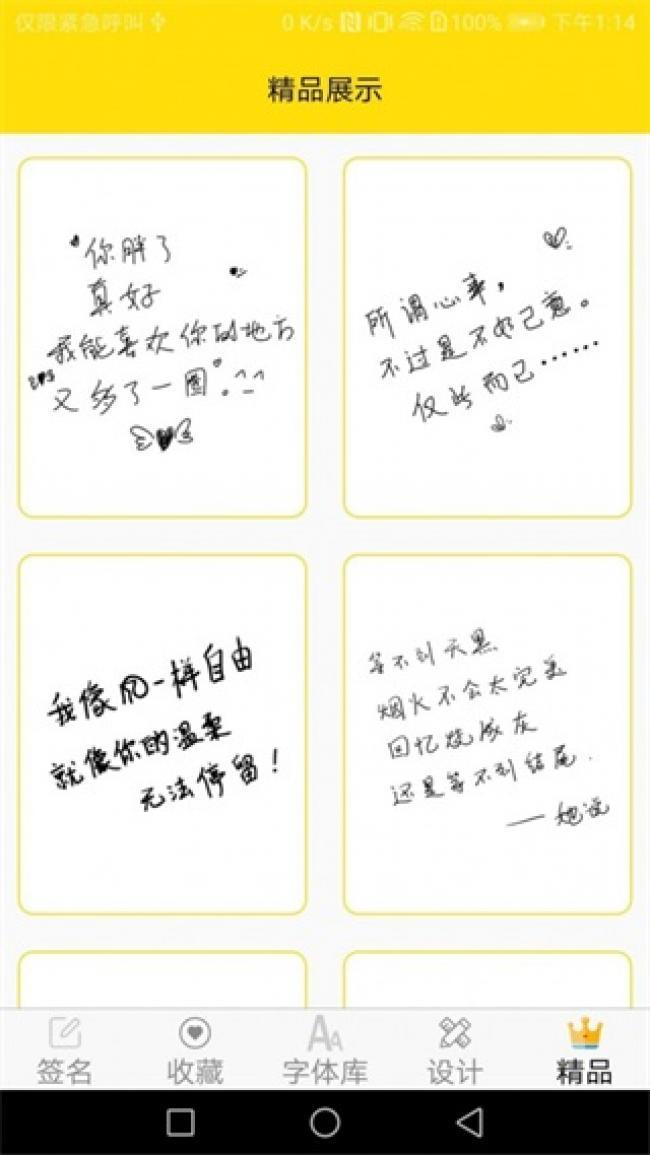 仅限紧急呼叫 0 K/s 100% 下午1:14
精品展示
你胖了
真好
我能喜欢你的地方
又多了一圈。^_^
所谓心事，
不过是不如己意。
仅此而已……
我像风一样自由
就像你的温柔
无法停留！
等不到天黑
烟火不会太完美
回忆烧成灰
还是等不到结尾.
——她说
签名 收藏 字体库 设计 精品